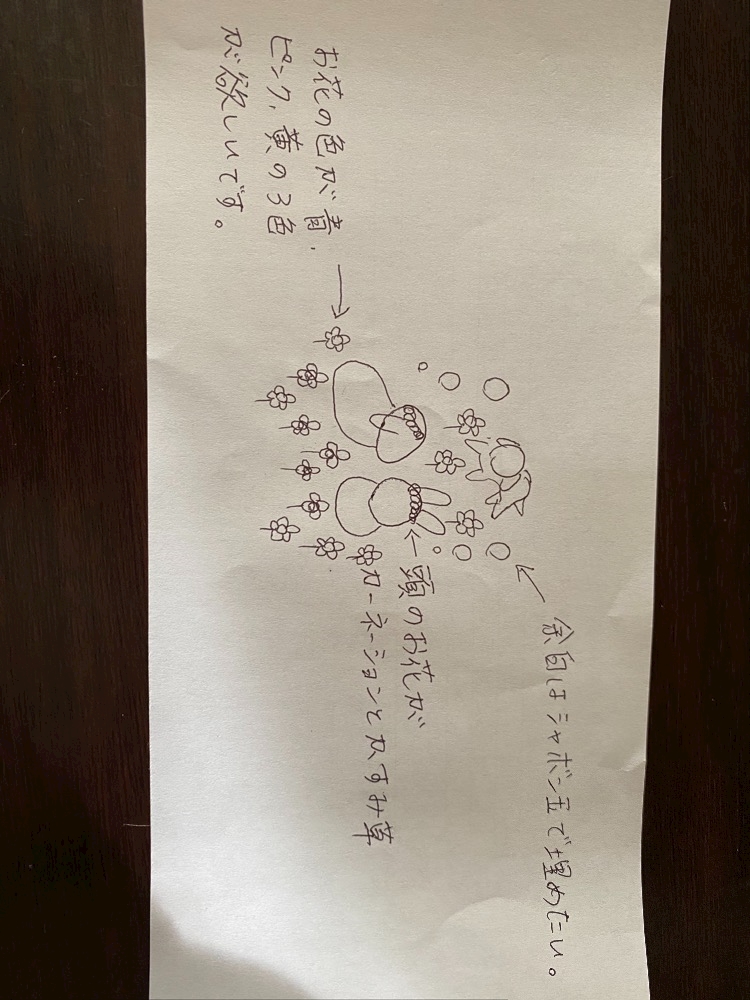 余白はシャボン玉で埋めたい。
頭のお花が
カーネーションとかすみ草
お花の色が青、
ピンク、黄の3色
が欲しいです。